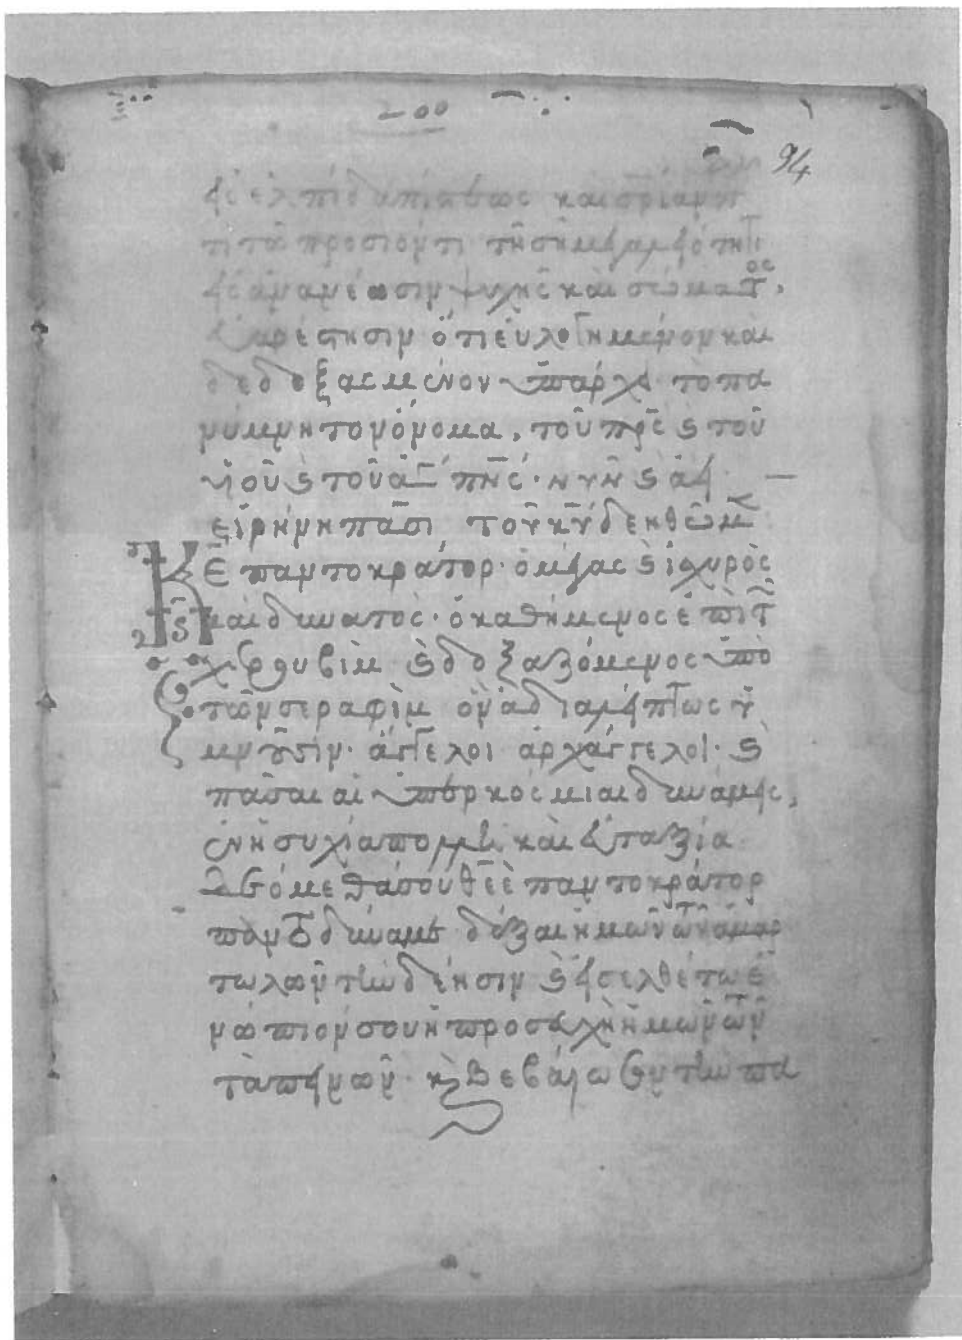 200
94
εἰς ἐλπίδα πίστεως καὶ
τι τῶ προσιόντι τῆ σῆ μεγαλειότητι
εἰς ἀνανέωσιν ψυχῆς καὶ σώματος,
ὅτι εὐλογημένον καὶ
δεδοξασμένον ὑπάρχει τὸ πα
νύμνητον ὄνομα, τοῦ πρς ϛ τοῦ
υἱοῦ ϛ τοῦ ἁγ πνς· νῦν ϛ ἀεὶ
εἰρήνη πᾶσι τοῦ κυ δεηθῶμ
Κε παντοκράτορ· ὁ μέγας ϛ ἰσχυρὸς
καὶ δυνατὸς· ὁ καθήμενος ἐπὶ τῶν
χερουβὶμ ϛ δοξαζόμενος ὑπὸ
τῶν σεραφὶμ ὃν ἀδιαλείπτως ὑ
μνοῦσιν· ἄγγελοι ἀρχάγγελοι· ϛ
πᾶσαι αἱ ὑπερκόσμιαι δυνάμεις,
ἐν ἡσυχία καὶ εὐταξία
δεόμεθά σου θεὲ παντοκράτορ
δυνάμε δέξαι ἡμῶν τῶν ἁμαρ
τωλῶν τὴν δέησιν ϛ εἰσελθέτω ἐ
νώπιόν σου ἡ προσευχὴ ἡμῶν τῶν
ταπεινῶν· κ βεβαίωσον τὴν πα